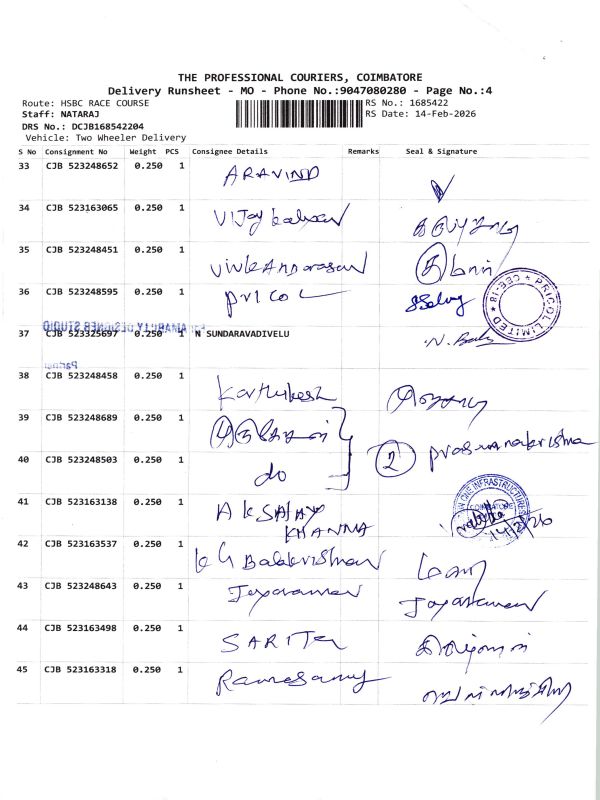 THE PROFESSIONAL COURIERS, COIMBATORE
Delivery Runsheet - MO - Phone No.:9047080280 - Page No.:4
Route: HSBC RACE COURSE
RS No.: 1685422
Staff: NATARAJ
RS Date: 14-Feb-2026
DRS No.: DCJB168542204
Vehicle: Two Wheeler Delivery
S No Consignment No Weight PCS Consignee Details Remarks Seal & Signature
33 CJB 523248652 0.250 1 ARAVIND
34 CJB 523163065 0.250 1
35 CJB 523248451 0.250 1
36 CJB 523248595 0.250 1 pricol
PRICOL LIMITED CBE-18
37 CJB 523325697 0.250 1 N SUNDARAVADIVELU
38 CJB 523248458 0.250 1
39 CJB 523248689 0.250 1
40 CJB 523248503 0.250 1 do 2 prasannakrishna
41 CJB 523163138 0.250 1 AKSHAY
KHANNA
INFRASTRUCTURES
COIMBATORE
14/2/26
42 CJB 523163537 0.250 1 K G Balakrishnan
43 CJB 523248643 0.250 1 Jeyaraman Jayaraman
44 CJB 523163498 0.250 1 SARITA
45 CJB 523163318 0.250 1 Ramasamy